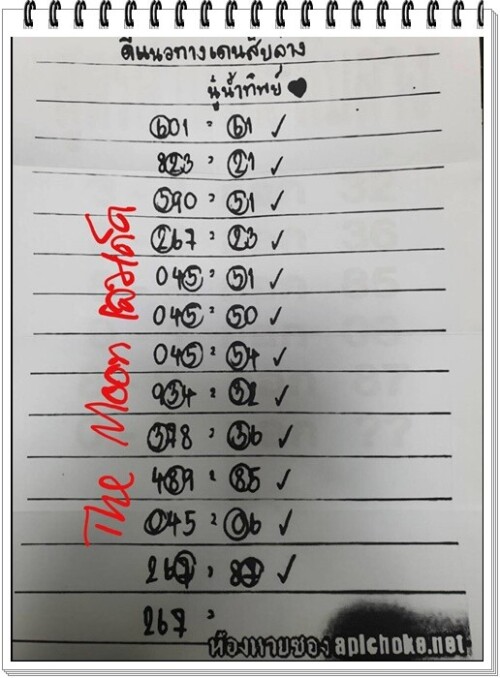 ดีแนวทางเด่นสิบล่าง
นู๋น้ำทิพย์
601 = 61 ✓
823 = 21 ✓
590 = 51 ✓
267 = 23 ✓
045 = 51 ✓
045 = 50 ✓
045 = 54 ✓
934 = 32 ✓
378 = 36 ✓
489 = 85 ✓
045 = 06 ✓
267 = 87 ✓
267 =
The Moon
ห้องหวยซอง apichoke.net